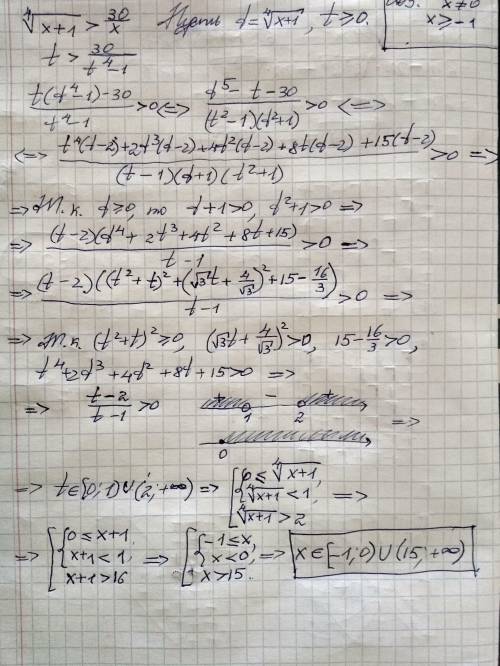 ∜(x+1) > 30/x   Пусть t = ∜(x+1), t ≥ 0.   x ≠ 0
t > 30/(t⁴-1)   x ≥ -1
(t(t⁴-1)-30)/(t⁴-1) > 0 <=> (t⁵-t-30)/((t²-1)(t²+1)) > 0 <=>
<=> (t⁴(t-2)+2t³(t-2)+4t²(t-2)+8t(t-2)+15(t-2))/((t-1)(t+1)(t²+1)) > 0 =>
=> Т.к. t ≥ 0, то t+1>0, t²+1>0 =>
=> ((t-2)(t⁴+2t³+4t²+8t+15))/(t-1) > 0 =>
=> ((t-2)((t²+t)²+(√3t+4/√3)²+15-16/3))/(t-1) > 0 =>
=> Т.к. (t²+t)² ≥ 0, (√3t+4/√3)² > 0, 15-16/3 > 0,
t⁴+2t³+4t²+8t+15>0 =>
=> (t-2)/(t-1) > 0   + 1 - 2 +   =>
0
=> t ∈ [0; 1) ∪ (2; +∞) => [{0 ≤ ∜(x+1), ∜(x+1) < 1, ∜(x+1) > 2 =>
=> [{0 ≤ x+1, x+1 < 1, x+1 > 16 => [{-1 ≤ x, x < 0, x > 15. => x ∈ [-1; 0) ∪ (15; +∞)